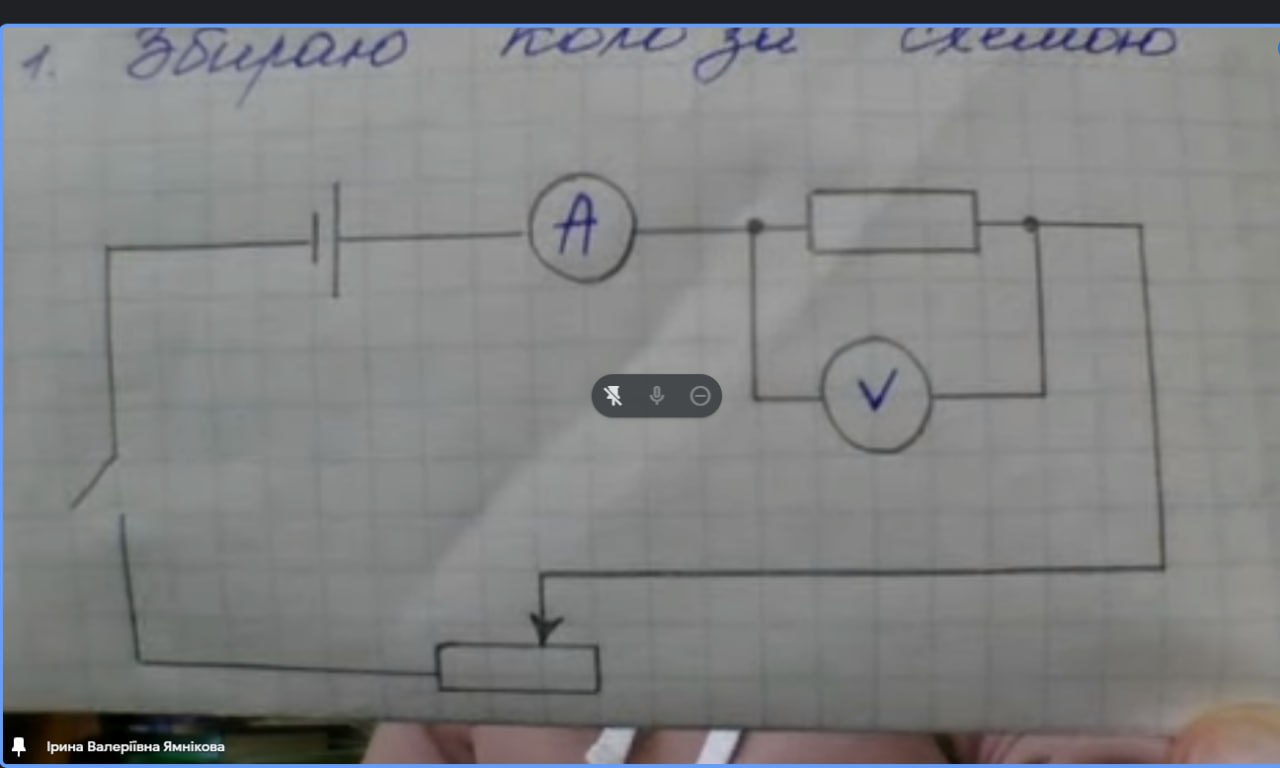 1. Збираю коло за схемою
A
V
Ірина Валеріївна Ямнікова